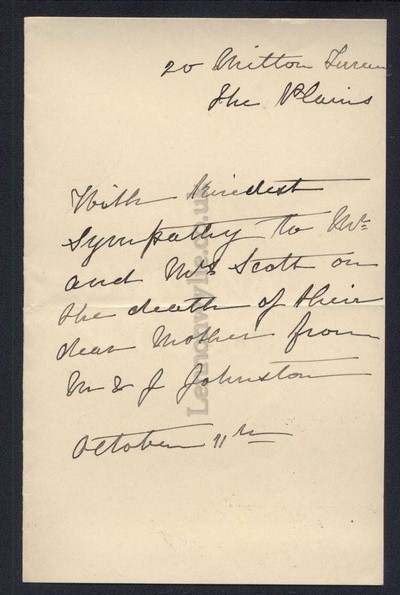 20 Milton
The Plains
With kindest
sympathy to Mr
and Mrs Scott on
the death of their
dear Mother from
M & J Johnston
October 11th